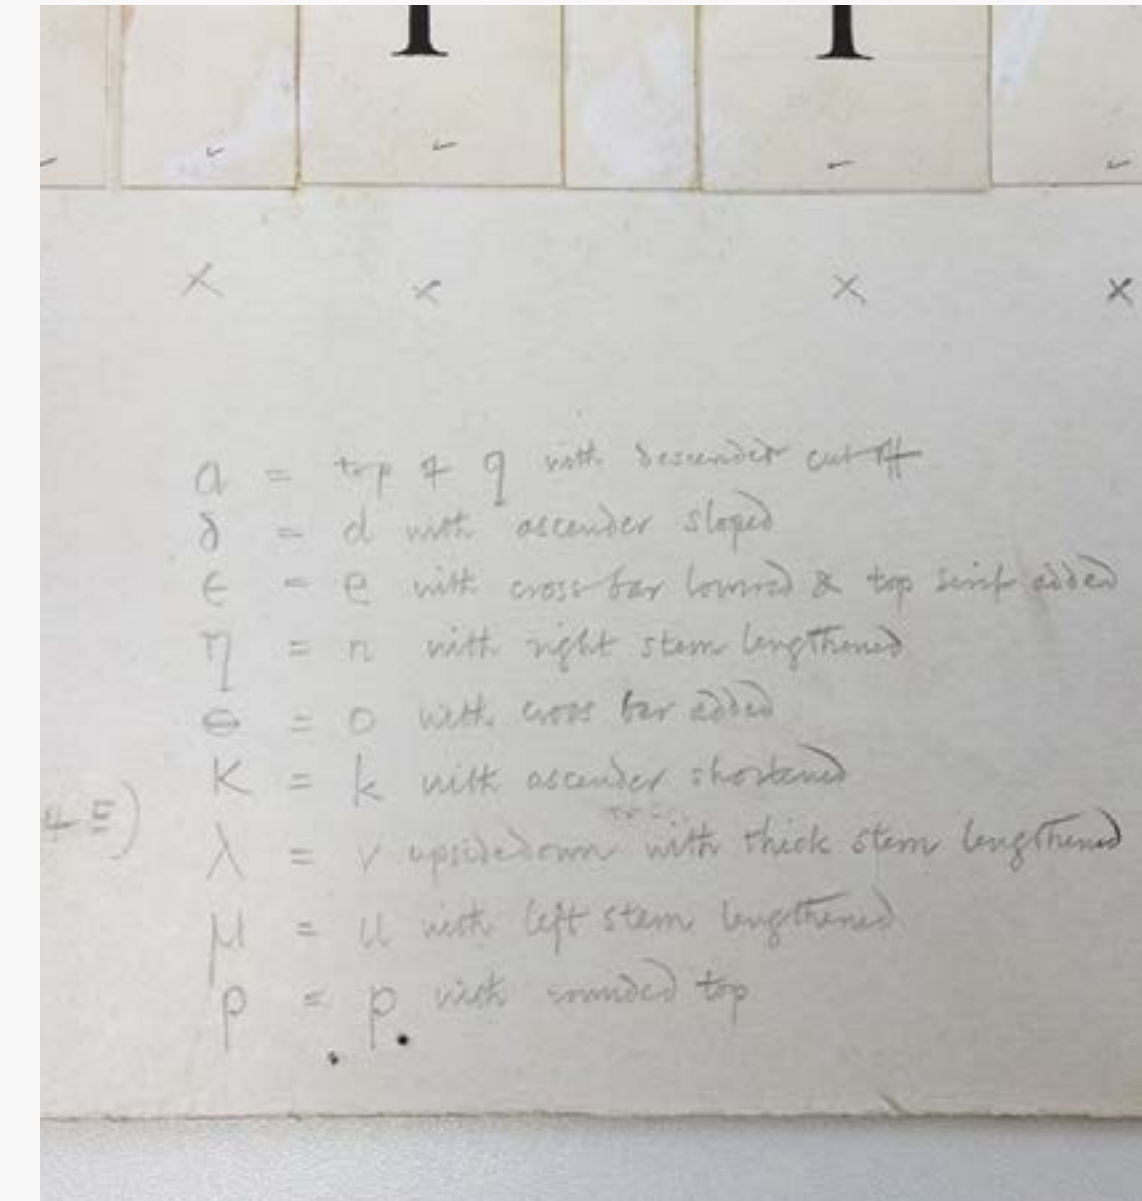 α = top of q with descender cut off
δ = d with ascender sloped
ϵ = e with cross bar lowered & top serif added
η = n with right stem lengthened
θ = o with cross bar added
κ = k with ascender shortened
λ = v upsidedown with thick stem lengthened
μ = u with left stem lengthened
ρ = p with rounded top